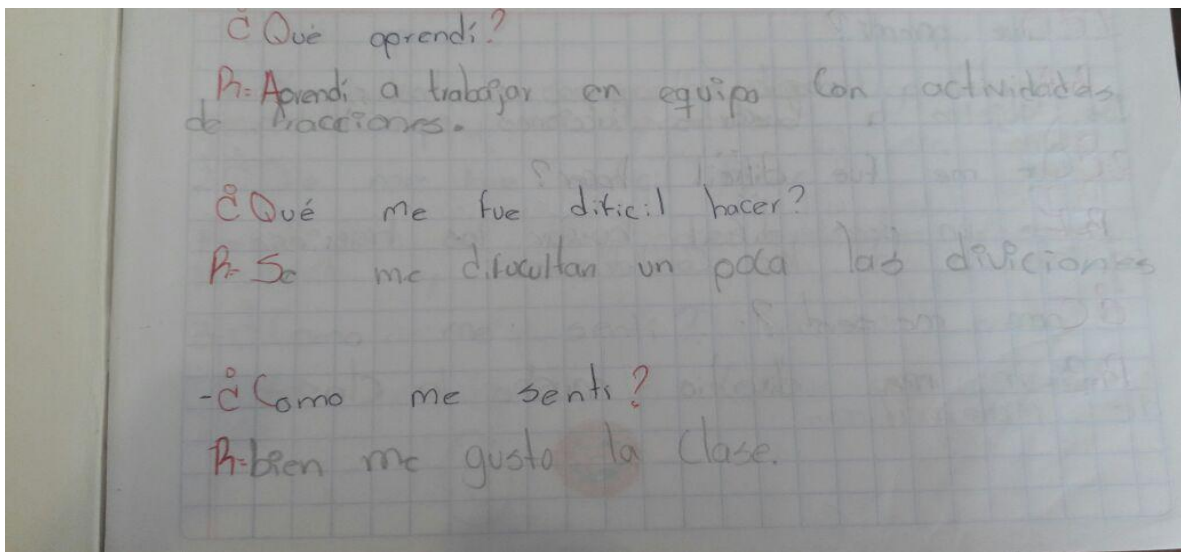 ¿Qué aprendí?
R= Aprendí a trabajar en equipo con actividades
de fracciones.
¿Qué me fue dificil hacer?
R= Se me difucultan un poco las diviciones
-¿Como me senti?
R=bien me gusto la clase.